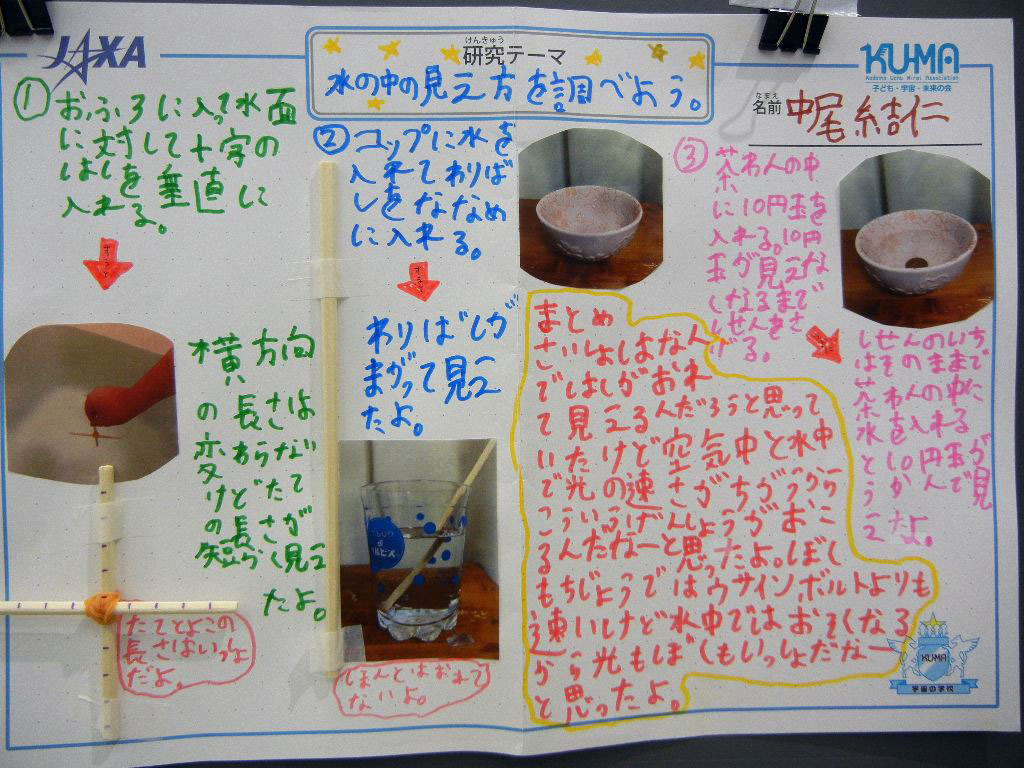 JAXA
けんきゅう
研究テーマ
水の中の見え方を調べよう。
KUMA
Kodomo Uchu Mirai Association
子ども・宇宙・未来の会
なまえ
名前 中尾 結仁
① おふろに入って水面
に対して十字の
はしを垂直に
入れる。
すると
横方向
の長さは
変わらない
けどたて
の長さが
短く見え
たよ。
たてとよこの
長さはいっしょ
だよ。
② コップに水を
入れてわりば
しをななめ
に入れる。
すると
わりばしが
まがって見え
たよ。
ほんとはおれて
ないよ。
③ 茶わんの中
に10円玉を
入れる。10円
玉が見えな
くなるまで
しせんをさ
げる。
しせんのいち
はそのままで
茶わんの中に
水を入れる
と10円玉が
うかんで見
えたよ。
まとめ
さいしょはなん
ではしがおれ
て見えるんだろうと思って
いたけど空気中と水中
で光の速さがちがうから
こういうげんしょうがおこ
るんだなーと思ったよ。ぼく
もちじょうではウサイン,ボルトよりも
速いけど水中ではおそくなる
から光もぼくもいっしょだなー
と思ったよ。
KUMA
宇宙の学校